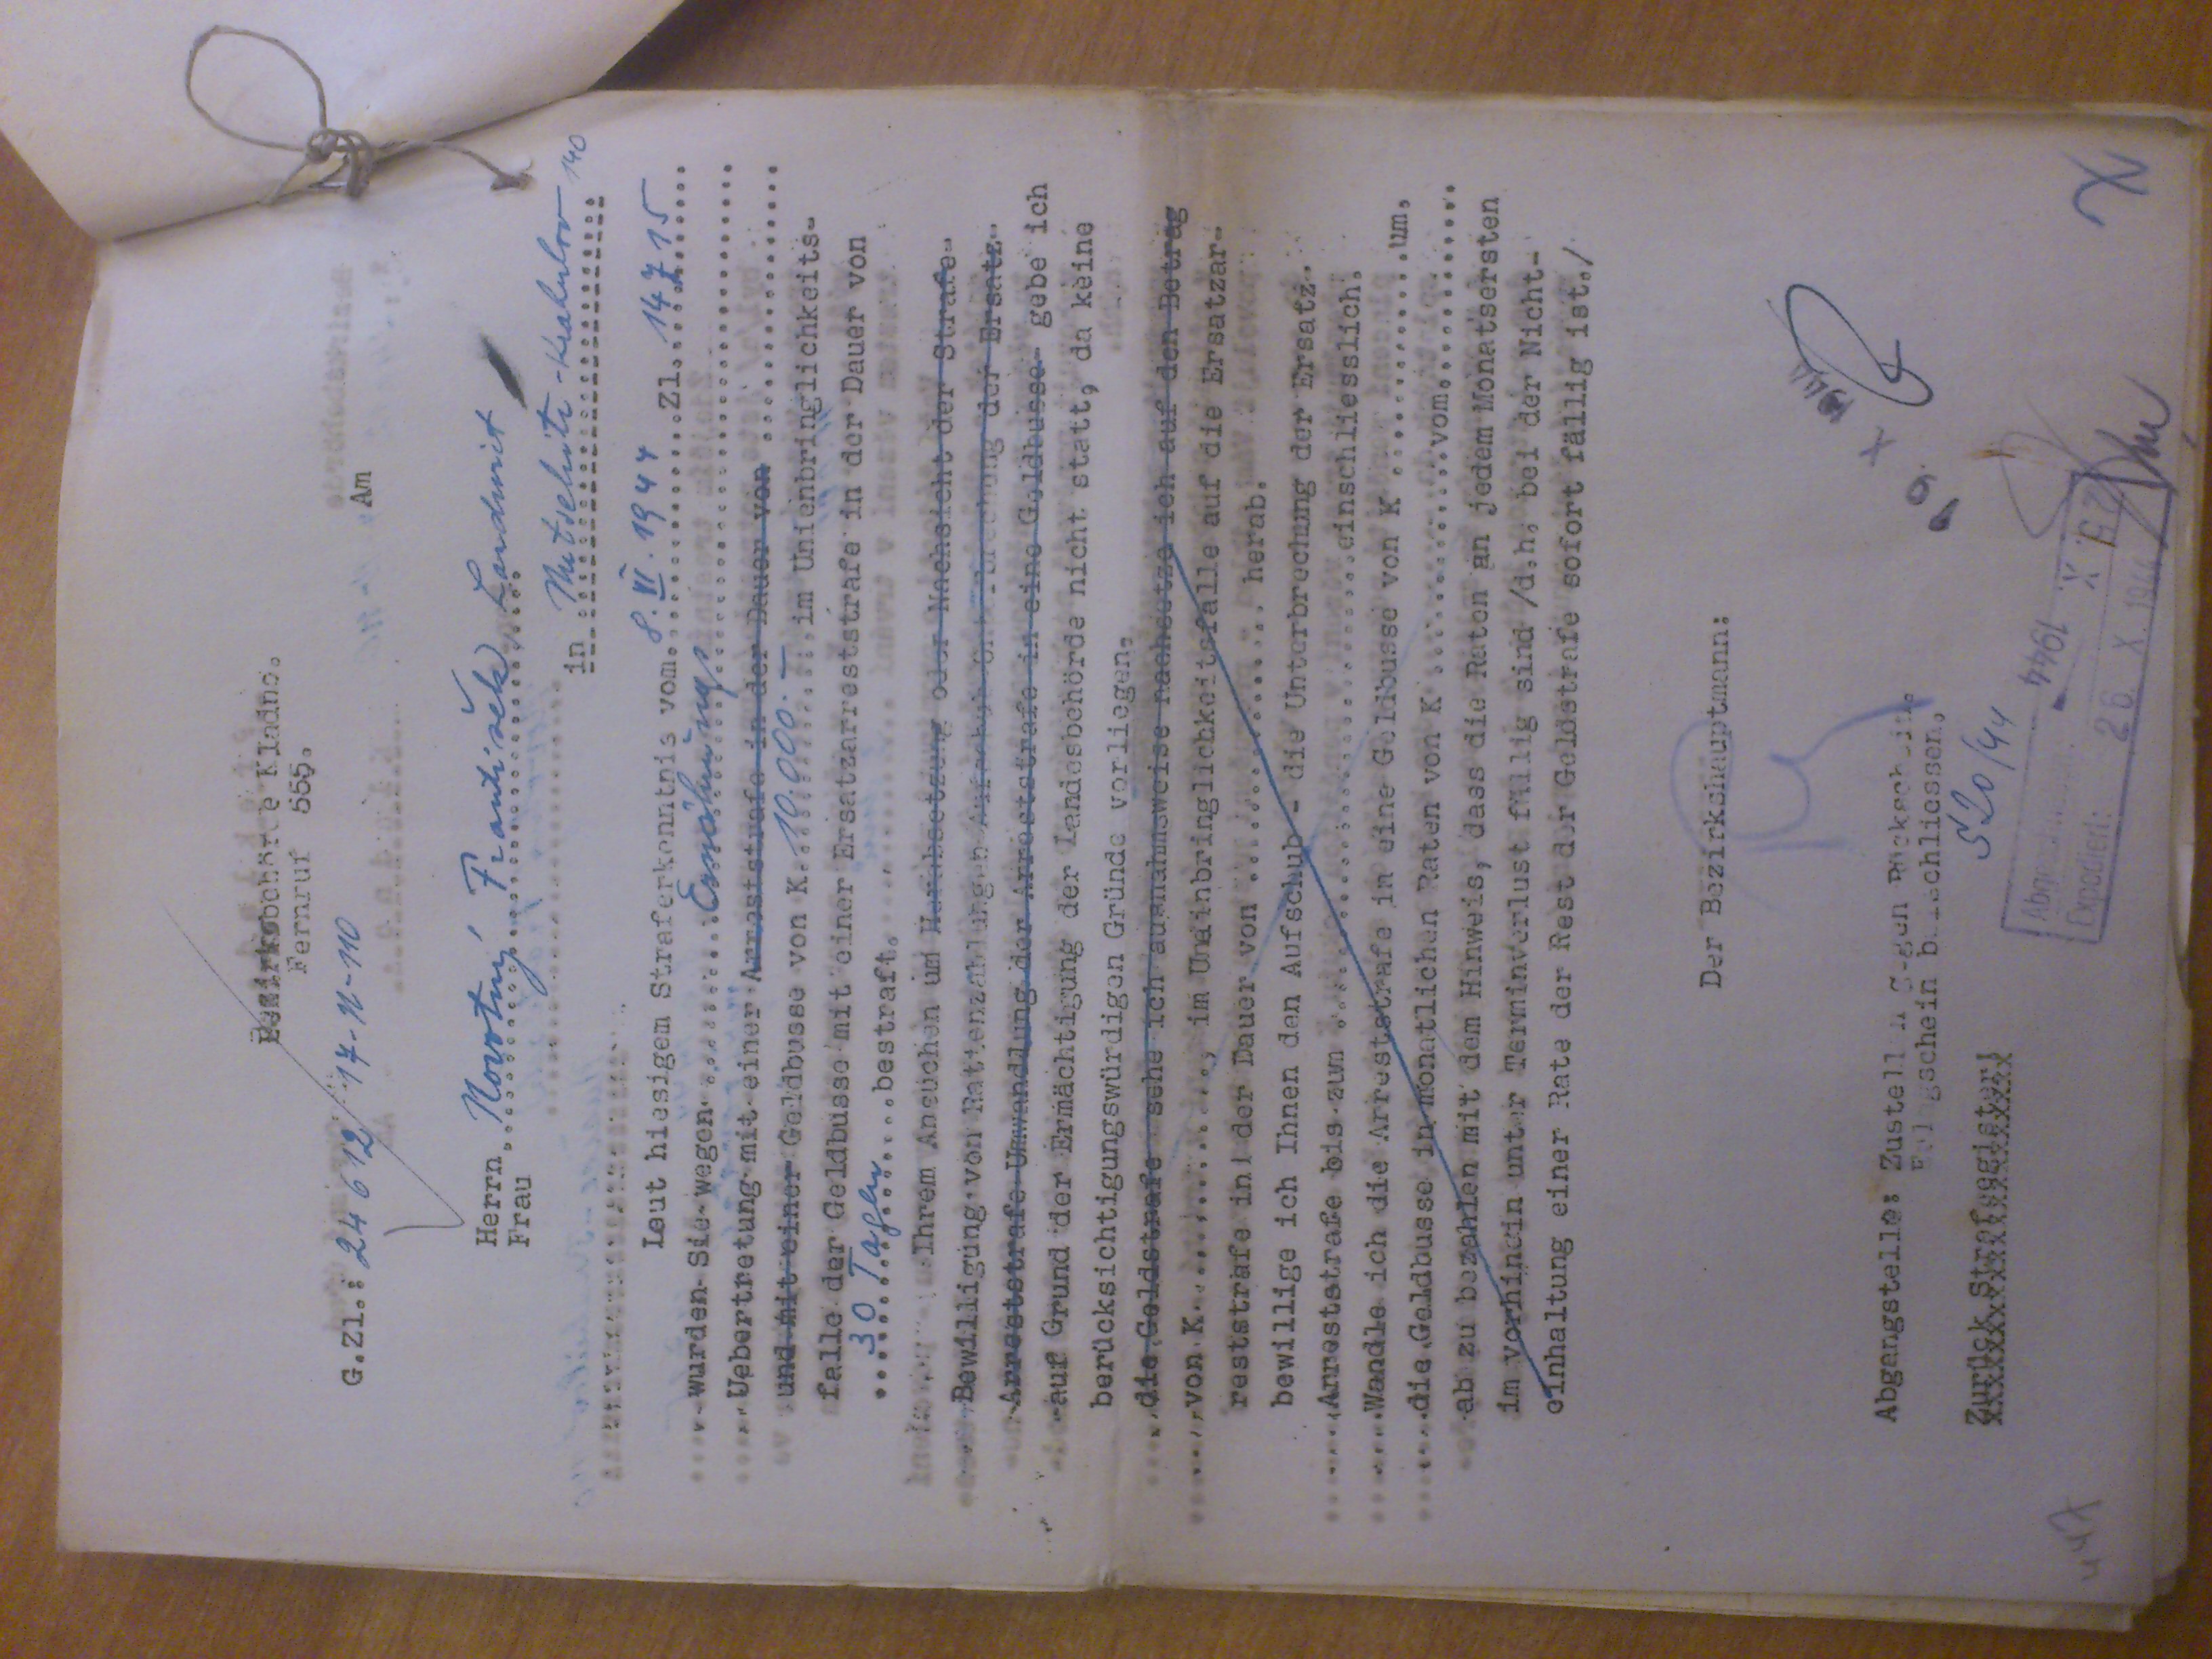 Bezirksbehörde Kladno.
Fernruf 555.
G.Zl.: 24 612/17-II-110
Am
Herrn Novotný František Landwirt
Frau
in -Krahulov 140
Laut hiesigem Straferkenntnis vom 8. VI. 1944 Zl. 14715
wurden Sie wegen Ernährungs
Uebertretung mit einer Arreststrafe in der Dauer von ................
und mit einer Geldbusse von K. 10.000.- im Unienbringlichkeits-
falle der Geldbusse mit einer Ersatzarreststrafe in der Dauer von
30 Tagen bestraft.
Ihrem Ansuchen um Herabsetzung oder Nachsicht der Strafe-
Bewilligung von Rattenzahlungen Aufschub Unterbrechung der Ersatz-
Arreststrafe Umwandlung der Arreststrafe in eine Geldbusse- gebe ich
auf Grund der Ermächtigung der Landesbehörde nicht statt, da keine
berücksichtigungswürdigen Gründe vorliegen.
die Geldstrafe sehe ich ausnahmsweise nachsetze ich auf den Betrag
von K..............., im Uneinbringlichkeitsfalle auf die Ersatzar-
reststrafe in der Dauer von ................ herab.
bewillige ich Ihnen den Aufschub - die Unterbrechung der Ersatz-
Arreststrafe bis zum ...........................einschliesslich.
Wandle ich die Arreststrafe in eine Geldbusse von K .............um,
die Geldbusse in monatlichen Raten von K .............vom............
ab zu bezahlen mit dem Hinweis, dass die Raten an jedem Monatsersten
im vorhinein unter Terminverlust fällig sind /d.h. bei der Nicht-
einhaltung einer Rate der Rest der Geldstrafe sofort fällig ist./
Der Bezirkshauptmann:
19. X 1944
Abgangstelle: Zustellen gegen Rückschein.
Erlagschein beischliessen.
Zurück Strafregister!
xxxxxxxxxxxxxxxxxxxxx
520/44
Abgeschrieben: 25. X. 1944
Expediert: 26. X. 1944
447